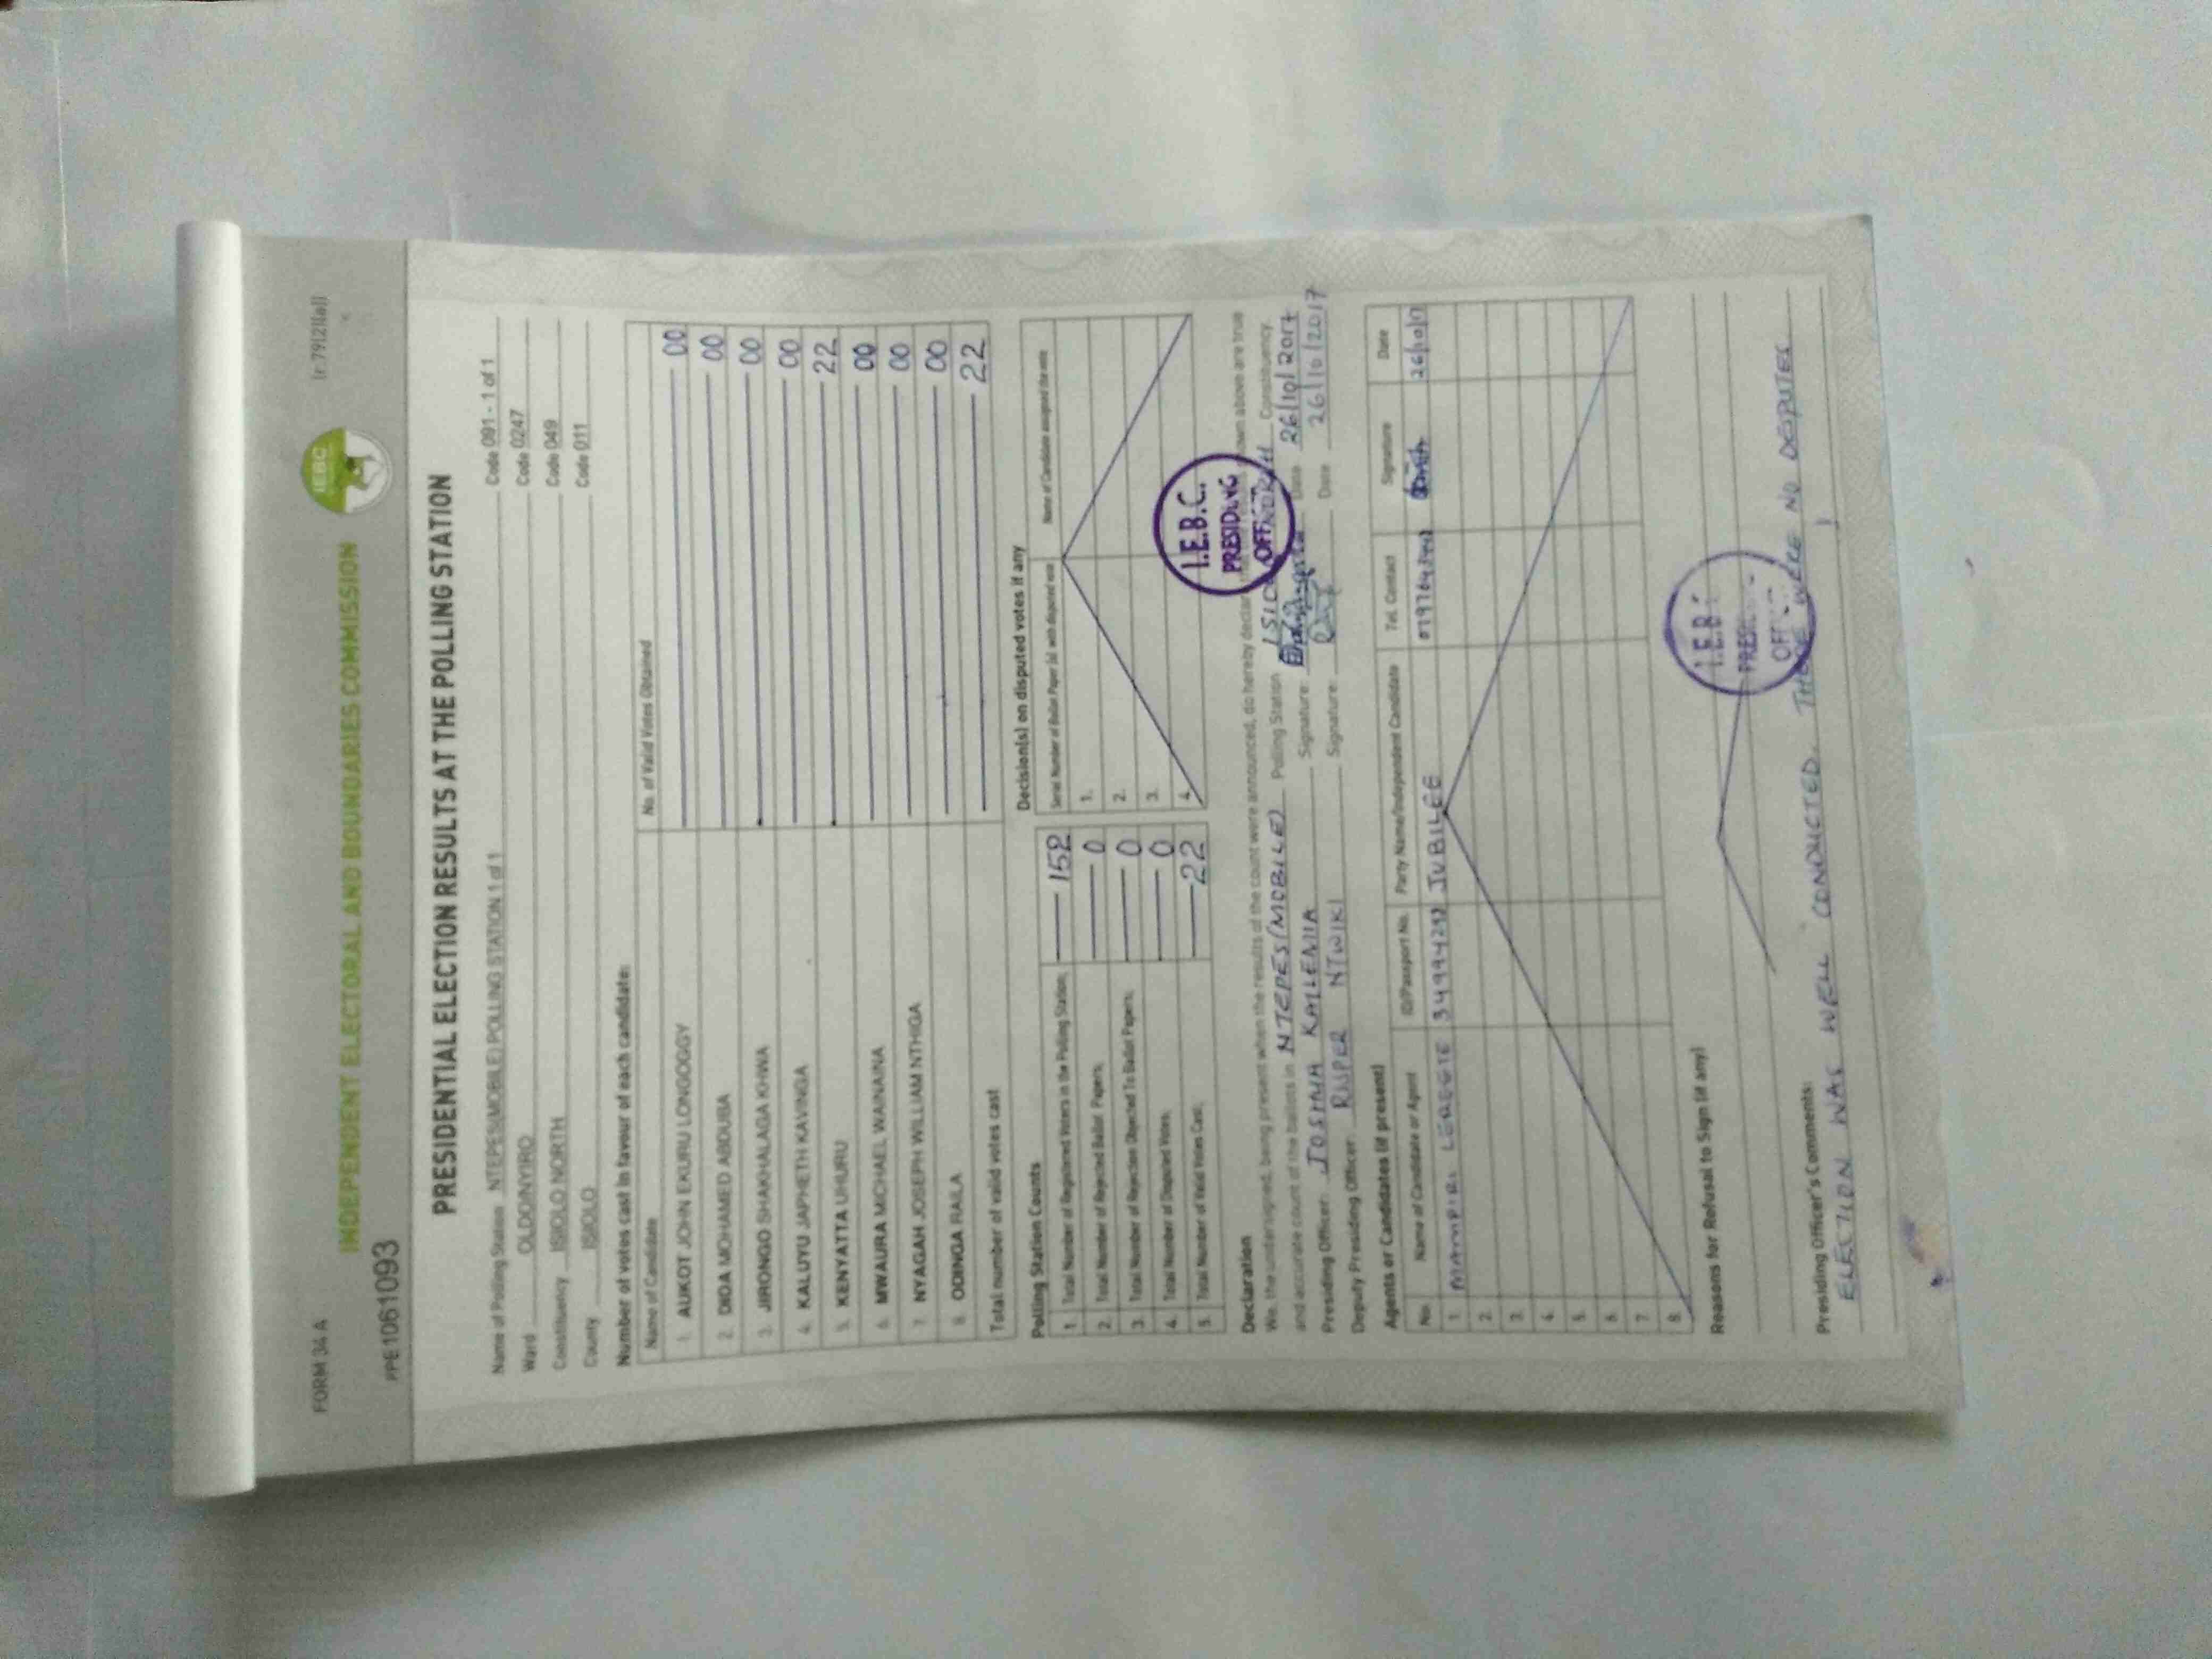 FORM 34 A
(r.79(2)(a))
INDEPENDENT ELECTORAL AND BOUNDARIES COMMISSION
IEBC
PPE1061093
PRESIDENTIAL ELECTION RESULTS AT THE POLLING STATION
Name of Polling Station NTEPES(MOBILE) POLLING STATION 1 of 1 Code 091 - 1 of 1
Ward OLDONYIRO Code 0247
Constituency ISIOLO NORTH Code 049
County ISIOLO Code 011
Number of votes cast in favour of each candidate:
Name of Candidate No. of Valid Votes Obtained
1. AUKOT JOHN EKURU LONGOGGY 00
2. DIDA MOHAMED ABDUBA 00
3. JIRONGO SHAKHALAGA KHWA 00
4. KALUYU JAPHETH KAVINGA 00
5. KENYATTA UHURU 22
6. MWAURA MICHAEL WAINAINA 00
7. NYAGAH JOSEPH WILLIAM NTHIGA 00
8. ODINGA RAILA 00
Total number of valid votes cast 22
Polling Station Counts
1. Total Number of Registered Voters in the Polling Station; 152
2. Total Number of Rejected Ballot Papers; 0
3. Total Number of Rejection Objected To Ballot Papers; 0
4. Total Number of Disputed Votes; 0
5. Total Number of Valid Votes Cast; 22
Decision(s) on disputed votes if any
Serial Number of Ballot Paper (s) with disputed vote Name of Candidate assigned the vote
1.
2.
3.
4.
Declaration
We, the undersigned, being present when the results of the count were announced, do hereby declare shown above are true
and accurate count of the ballots in NTEPES (MOBILE) Polling Station NORTH Constituency.
Presiding Officer: JOSHUA Signature: Date 26/10/2017
Deputy Presiding Officer: NTWIKI Signature: Date 26/10/2017
I.E.B.C.
PRESIDING
OFF
Agents or Candidates (if present)
No. Name of Candidate or Agent ID/Passport No. Party Name/Independent Candidate Tel. Contact Signature Date
1. JUBILEE 26/10/17
2.
3.
4.
5.
6.
7.
8.
Reasons for Refusal to Sign (if any)
Presiding Officer's Comments:
ELECTION WAS WELL CONDUCTED. THERE WERE NO DESPUTES
I.E.B.C
PRESI
OFF